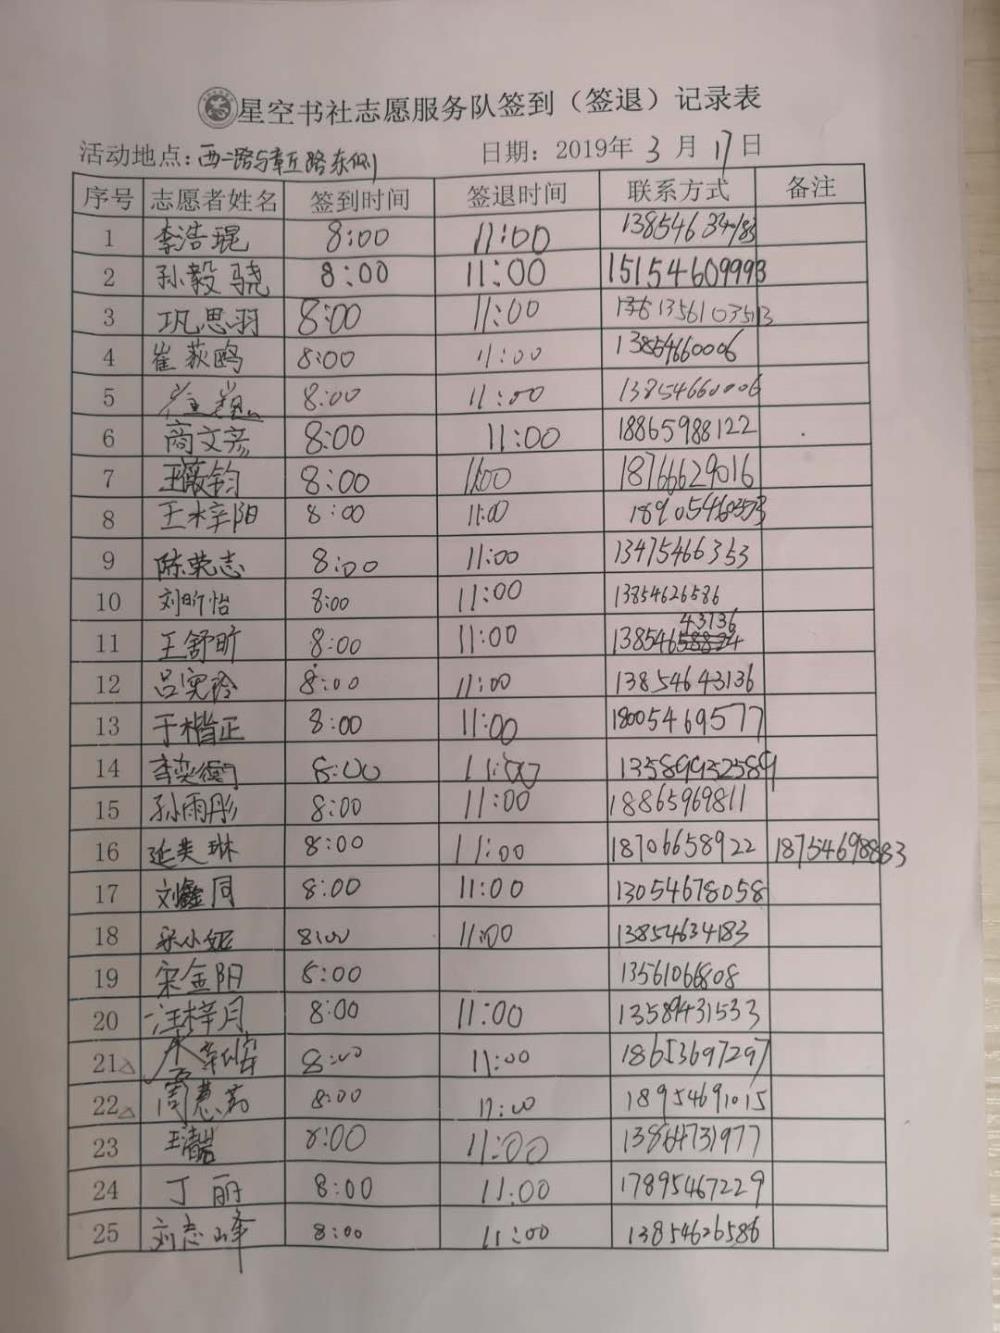 星空书社志愿服务队签到（签退）记录表
活动地点：西二路与章丘路东侧 日期：2019年 3 月 17 日
序号 志愿者姓名 签到时间 签退时间 联系方式 备注
1 李浩琨 8:00 11:00 13854634183
2 孙毅骁 8:00 11:00 15154609993
3 巩思羽 8:00 11:00 13561103513
4 崔荻鸥 8:00 11:00 13854660006
5 8:00 11:00 13854660006
6 商文彦 8:00 11:00 18865988122
7 王薇钧 8:00 11:00 18766629016
8 王梓阳 8:00 11:00
9 陈荣志 8:00 11:00 13475466353
10 刘昕怡 8:00 11:00 13854626586
11 王舒昕 8:00 11:00 13854643136
12 吕奕玲 8:00 11:00 13854643136
13 于楷正 8:00 11:00 18005469577
14 李奕衡 8:00 11:00 13589952589
15 孙雨彤 8:00 11:00 18865969811
16 延美琳 8:00 11:00 18706658922 18754698883
17 刘鑫同 8:00 11:00 13054678058
18 宋小姬 8:00 11:00 13854634183
19 宋金阳 8:00 13561066808
20 汪梓月 8:00 11:00 13589431533
21 8:00 11:00 18653697297
22 周慧 8:00 11:00 18954691015
23 8:00 11:00 13864731977
24 丁丽 8:00 11:00 17895467229
25 刘志峰 8:00 11:00 13854626586